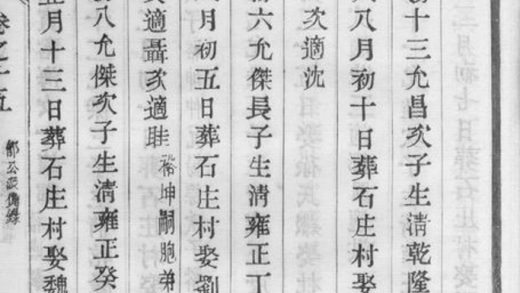 十三允昌次子生清乾隆
八月初十日葬石庄村娶
次適沈
六允傑長子生清雍正丁
月初五日葬石庄村娶劉
適聶次適眭裕坤嗣胞弟
八允傑次子生清雍正癸
月十三日葬石庄村娶魏
卷之十五